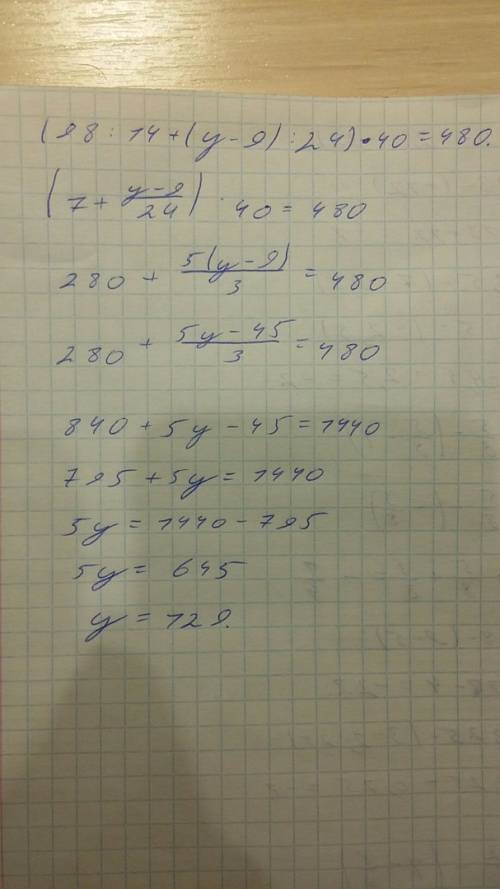 (98 : 14 + (y - 9) : 24) • 40 = 480.
(7 + \frac{y-9}{24}) · 40 = 480
280 + \frac{5(y-9)}{3} = 480
280 + \frac{5y-45}{3} = 480
840 + 5y - 45 = 1440
795 + 5y = 1440
5y = 1440 - 795
5y = 645
y = 129.